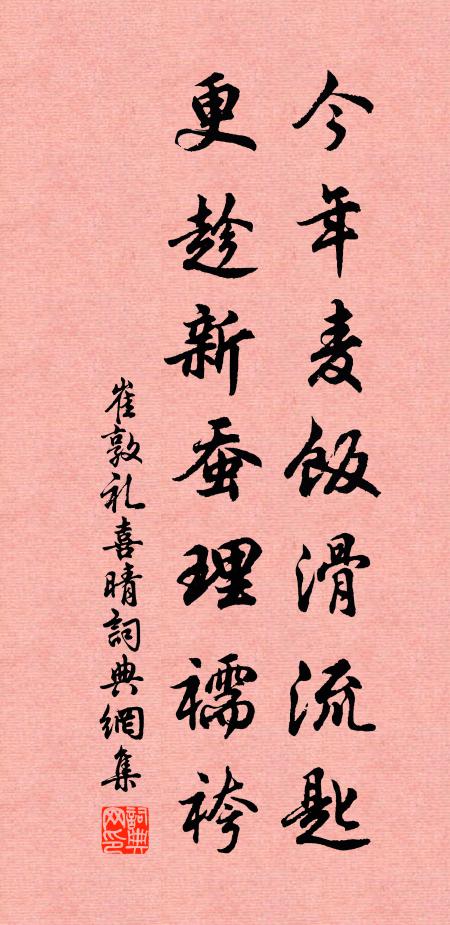 今年麦飯滑流匙
更趁新蚕理襦袴
崔敦礼喜晴詞典網集
詞典网印